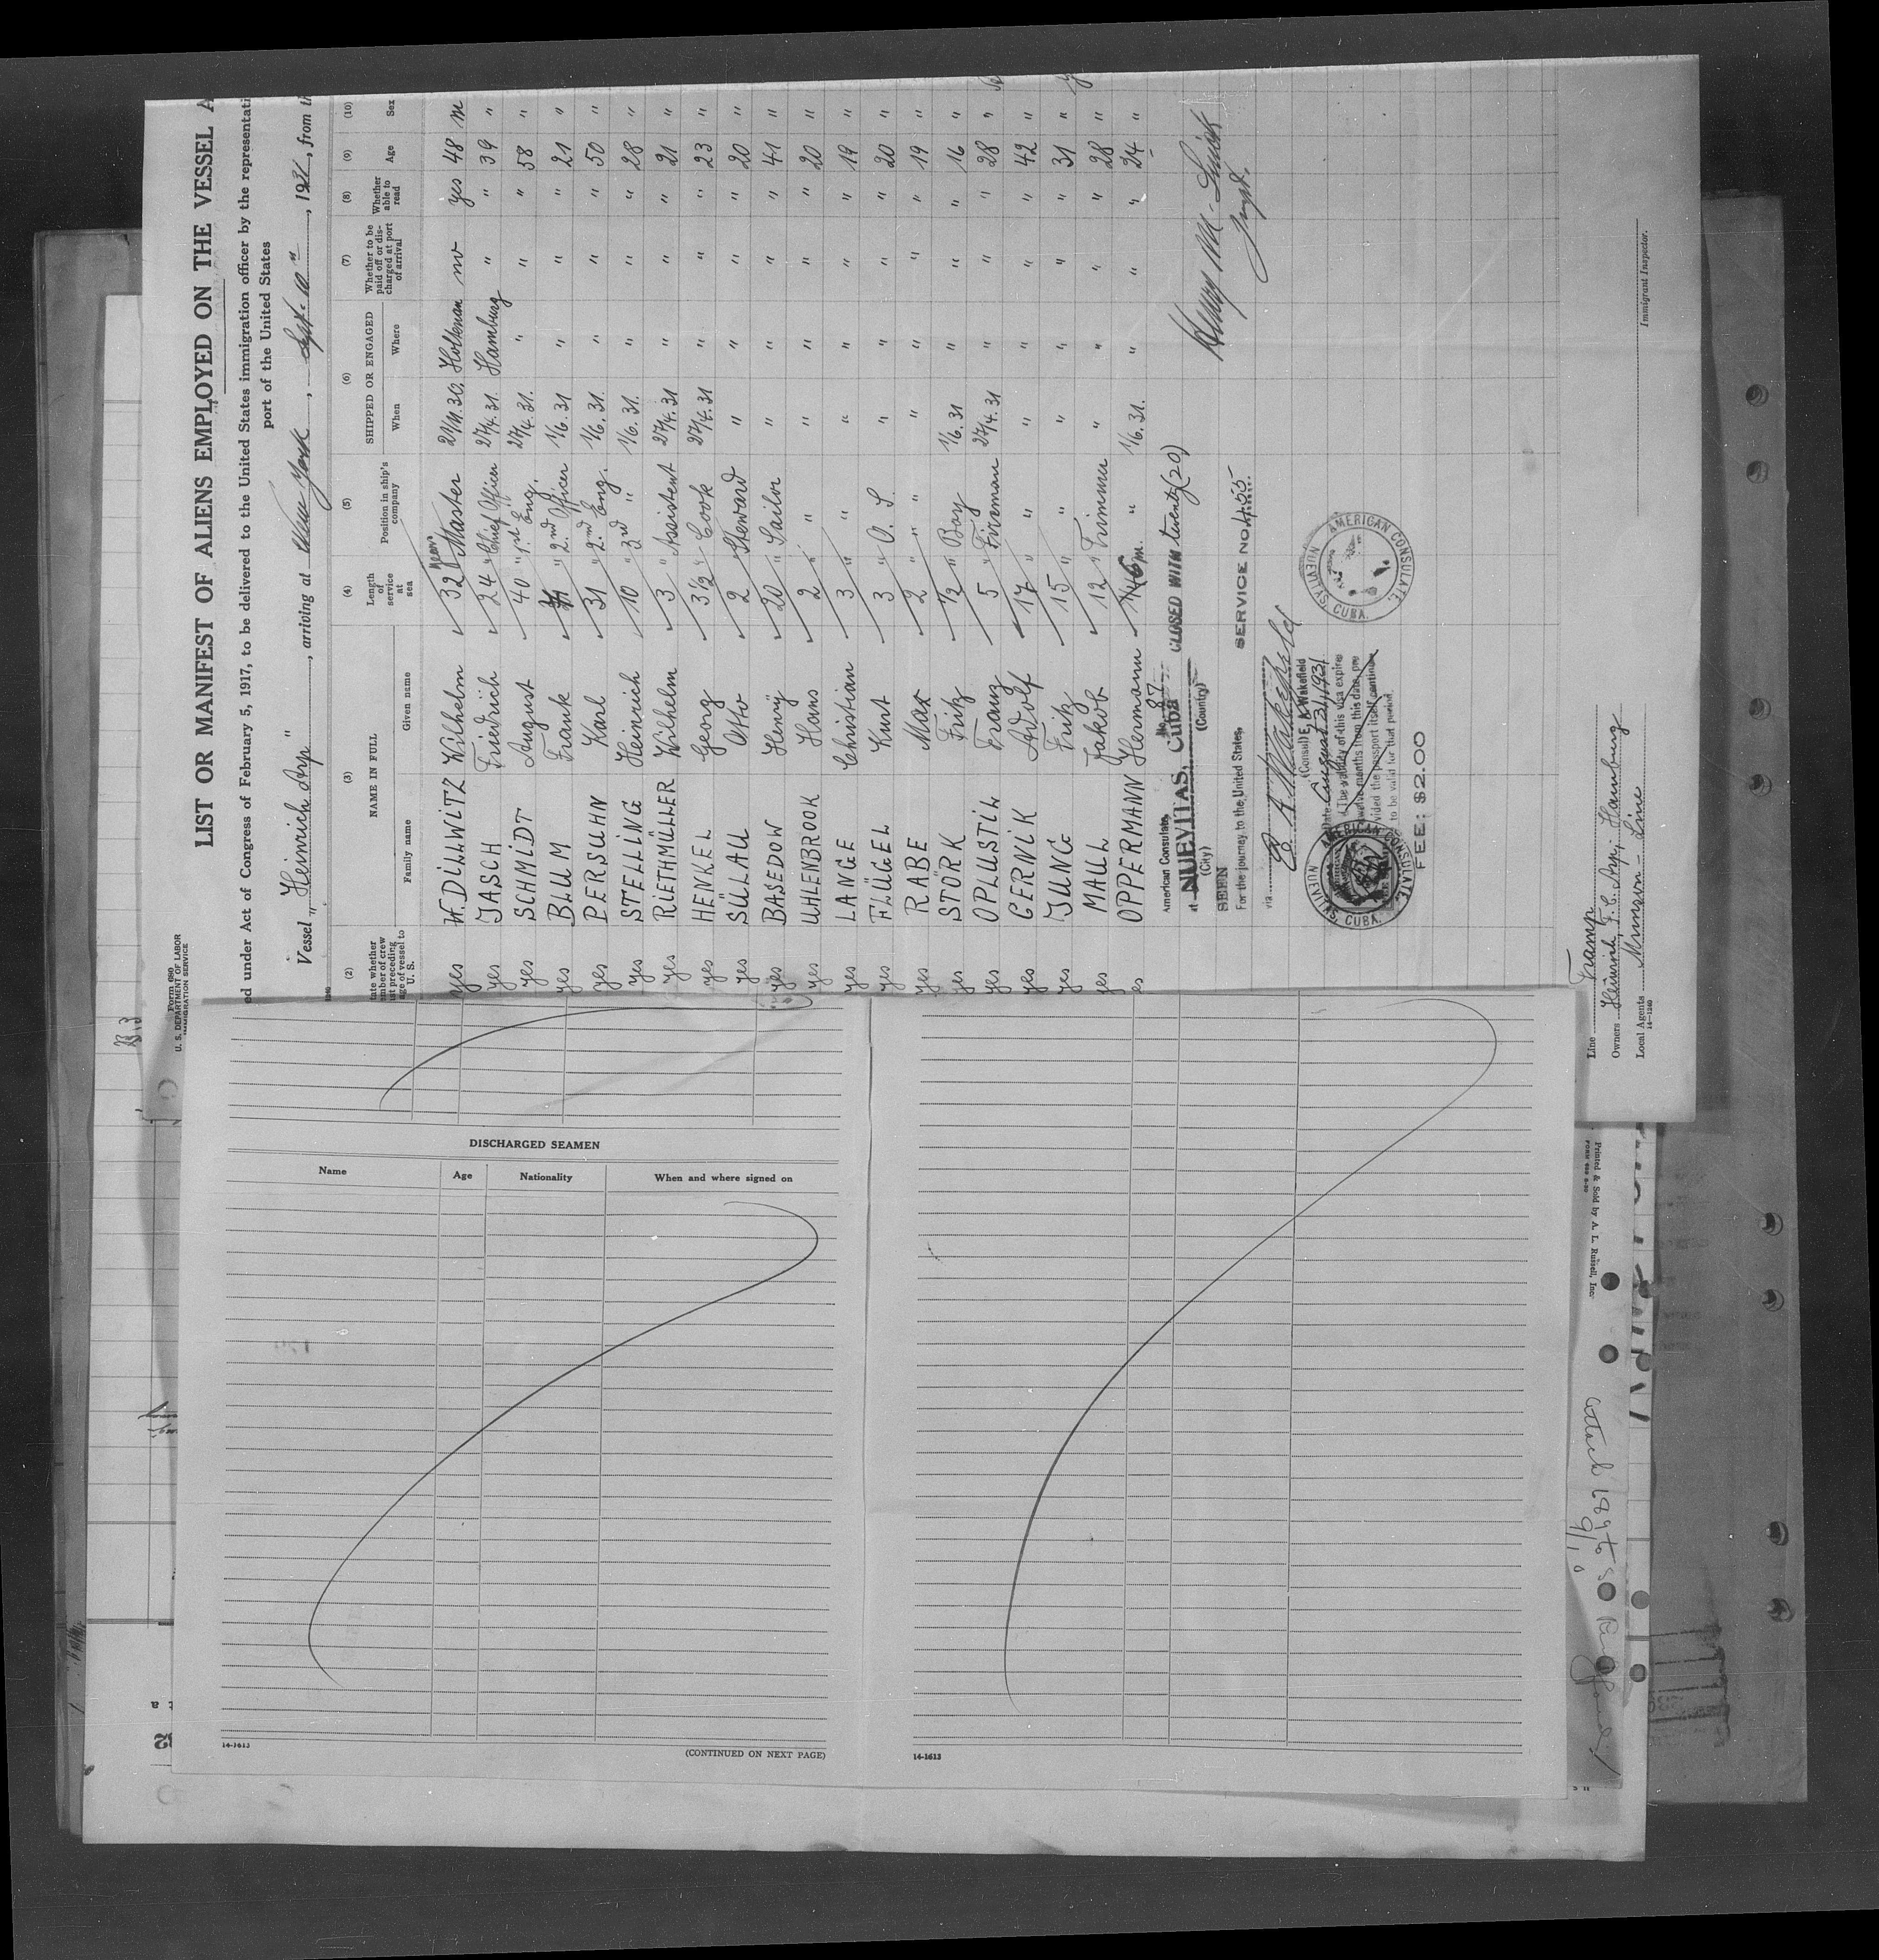 Form 680
U. S. DEPARTMENT OF LABOR
IMMIGRATION SERVICE
LIST OR MANIFEST OF ALIENS EMPLOYED ON THE VESSEL A
ed under Act of Congress of February 5, 1917, to be delivered to the United States immigration officer by the representati
port of the United States
Vessel „Heinrich Arp", arriving at New York, Sept. 10", 1931, from
(2) (3) (4) (5) (6) (7) (8) (9) (10)
NAME IN FULL Length of service at sea Position in ship's company SHIPPED OR ENGAGED Whether to be paid off or discharged at port of arrival Whether able to read Age Sex
Family name Given name When Where
yes W. DILLWITZ Wilhelm 32 years Master 21/11.30. Holtenau no yes 48 m
yes JASCH Friedrich 24 " Chief Officer 27/4.31. Hamburg " " 39 "
yes SCHMIDT August 40 " 1st Eng. 27/4.31. " " " 58 "
yes BLUM Frank " 2nd Officer 1/6.31 " " " 21 "
yes PERSUHN Karl 31 " 2nd Eng. 1/6.31. " " " 50 "
yes STELLING Heinrich 10 " 3rd " 1/6.31. " " " 28 "
yes RIETHMÜLLER Wilhelm 3 " Assistent 27/4.31 " " " 21 "
yes HENKEL Georg 3½ " Cook 27/4.31 " " " 23 "
yes SÜLAU Otto 2 " Steward " " " " 20 "
yes BASEDOW Henry 20 " Sailor " " " " 41 "
yes UHLENBROOK Hans 2 " " " " " " 20 "
yes LANGE Christian 3 " " " " " " 19 "
yes FLÜGEL Kurt 3 " O. S. " " " " 20 "
yes RABE Max 2 " " " " " " 19 "
yes STÖRK Fritz ½ " Boy 1/6.31 " " " 16 "
yes OPLUSTIL Franz 5 " Fireman 27/4.31 " " " 28 "
yes GERNIK Adolf 17 " " " " " " 42 "
yes JUNG Fritz 15 " " " " " " 31 "
yes MAUL Jakob 12 " Trimmer " " " " 28 "
es OPPERMANN Hermann 6 m. " 1/6.31. " " " 24 "
American Consulate, No. 87 CLOSED WITH twenty (20)
at NUEVITAS, Cuba
(City) (Country)
SEEN
For the journey to the United States SERVICE NO. 455
via
(Consul) E. A. Wakefield
Date August 31, 1931
(The validity of this visa expires
twelve months from this date, pro
vided the passport itself continues
to be valid for that period.
AMERICAN CONSULATE, NUEVITAS, CUBA.
AMERICAN CONSULATE, NUEVITAS, CUBA.
FEE: $2.00
Line Tramp
Owners Heinrich F. C. Arp, Hamburg
Local Agents Munson-Line
14—1240
Immigrant Inspector.
DISCHARGED SEAMEN
Name Age Nationality When and where signed on
14-1613
(CONTINUED ON NEXT PAGE)
14-1613
Printed & Sold by A. L. Russell, Inc.